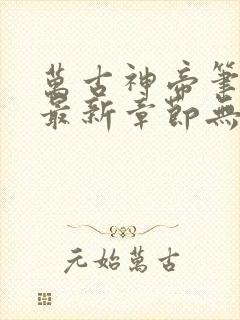 萬古神帝筆
最新章節無
元始萬古